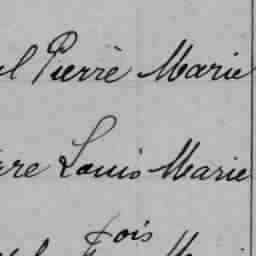 el Pierre Marie
rre Louis Marie
çois